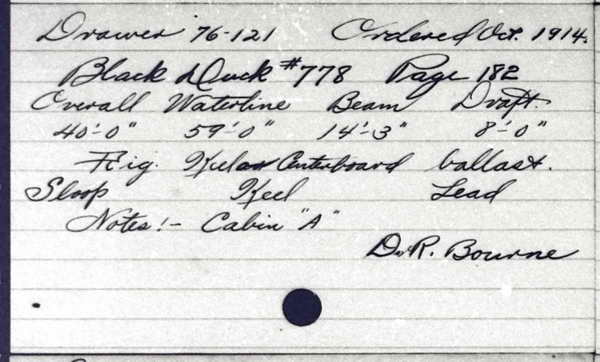 Drawer 76-121 Ordered Oct. 1914.
Black Duck #778 Page 182
Overall Waterline Beam Draft.
40'-0" 59'-0" 14'-3" 8'-0"
Rig. Keel or Centerboard ballast.
Sloop Keel Lead
Notes:- Cabin "A"
D.R. Bourne